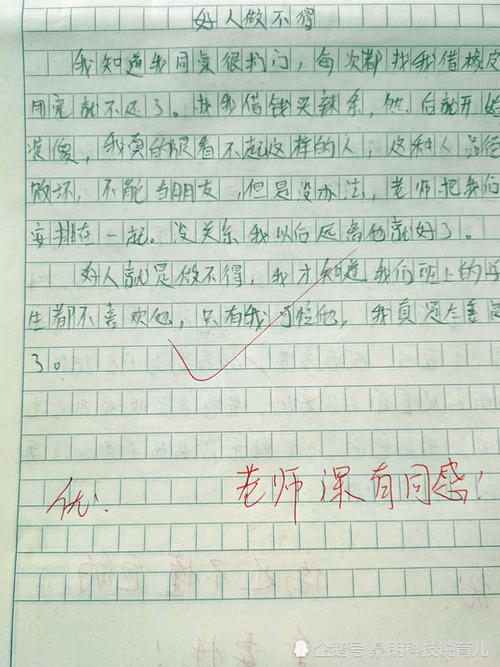 好人做不得
我知道我同桌很抠门，每次都找我借橡皮
用完就不还了。找我借钱买辣条，然后就开始
装傻，我真的很看不起这样的人，这种人品德
败坏，不能当朋友，但是没办法，老师把我们
安排在一起。没关系我以后远离他就好了。
好人就是做不得，我才知道我们班上的学
生都不喜欢他，只有我可怜他，我真是太善良
了。
优！
老师深有同感！
企鹅号 晨朗科技说育儿